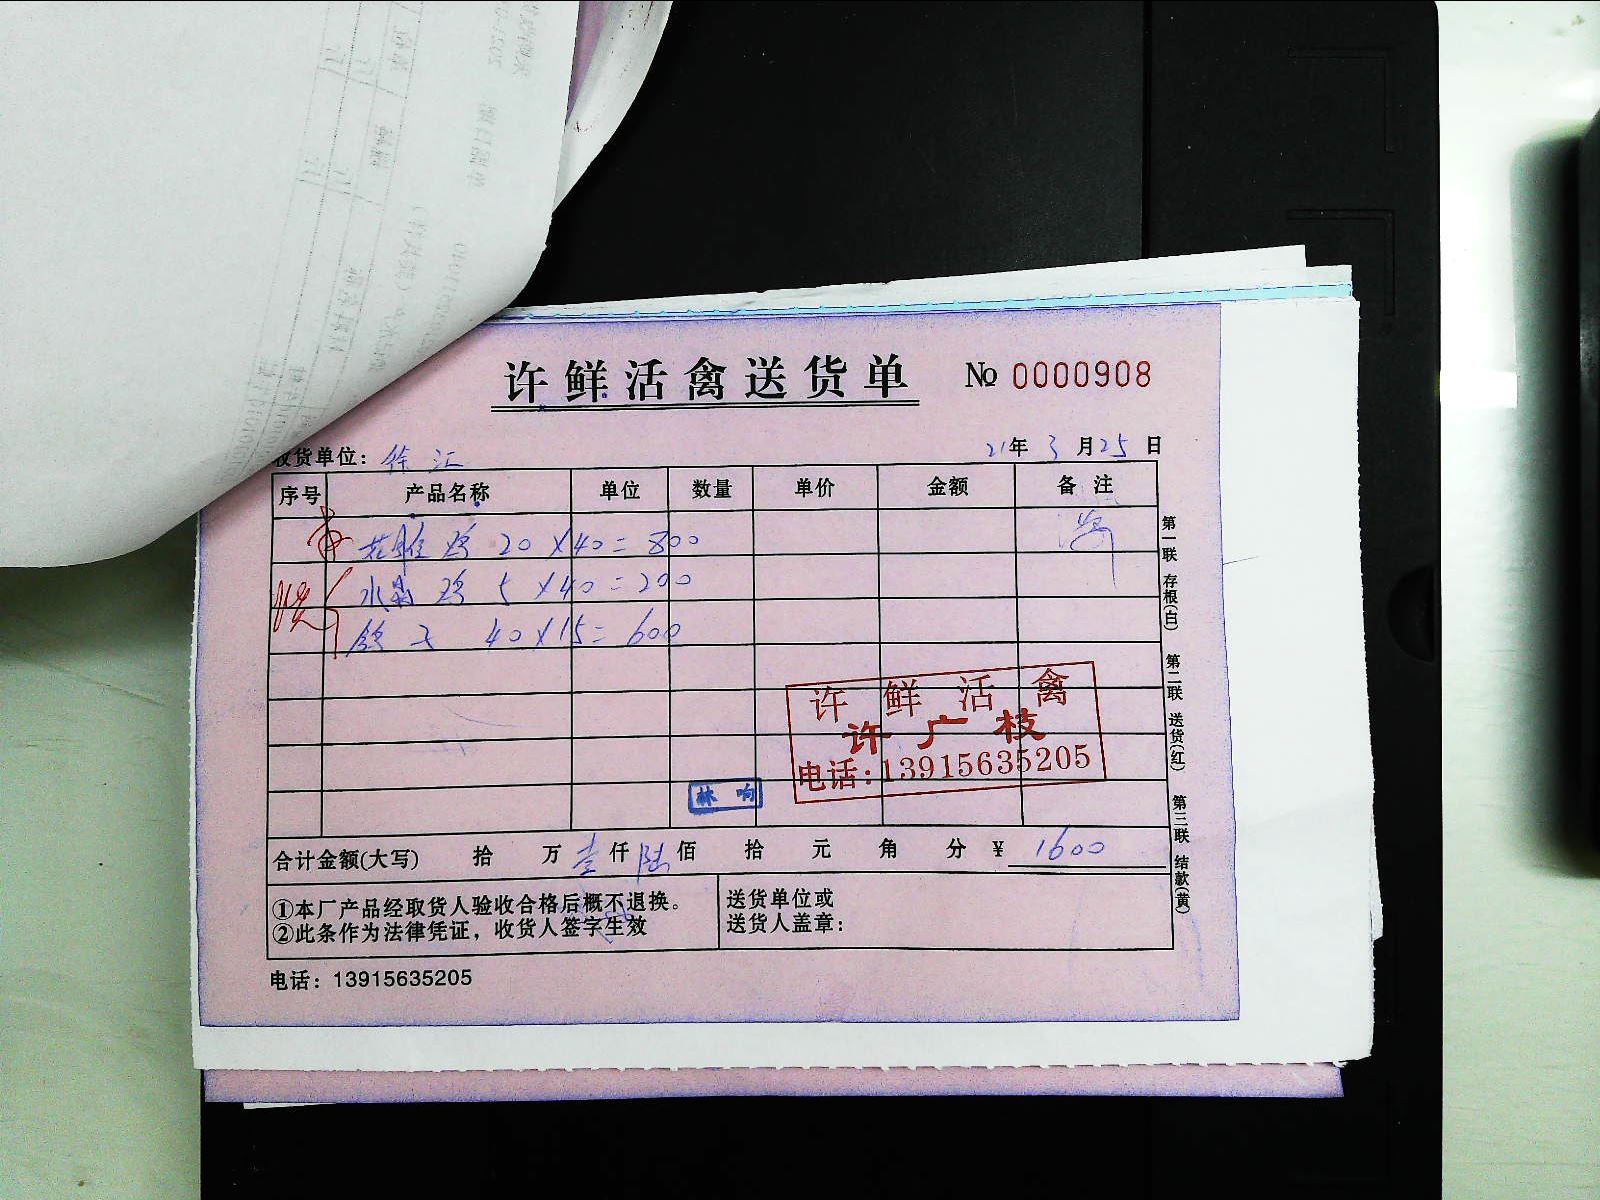 许鲜活禽送货单 № 0000908
收货单位：徐汇 21年3月25日
序号 产品名称 单位 数量 单价 金额 备注
花雕鸡 20×40=800
水晶鸡 5×40=200
鸽子 40×15=600
许鲜活禽
许广枝
电话:13915635205
林响
合计金额(大写) 拾 万 壹仟 陆佰 拾 元 角 分 ¥ 1600
①本厂产品经取货人验收合格后概不退换。
②此条作为法律凭证，收货人签字生效
送货单位或
送货人盖章：
电话：13915635205
第一联 存根(白) 第二联 送货(红) 第三联 结款(黄)